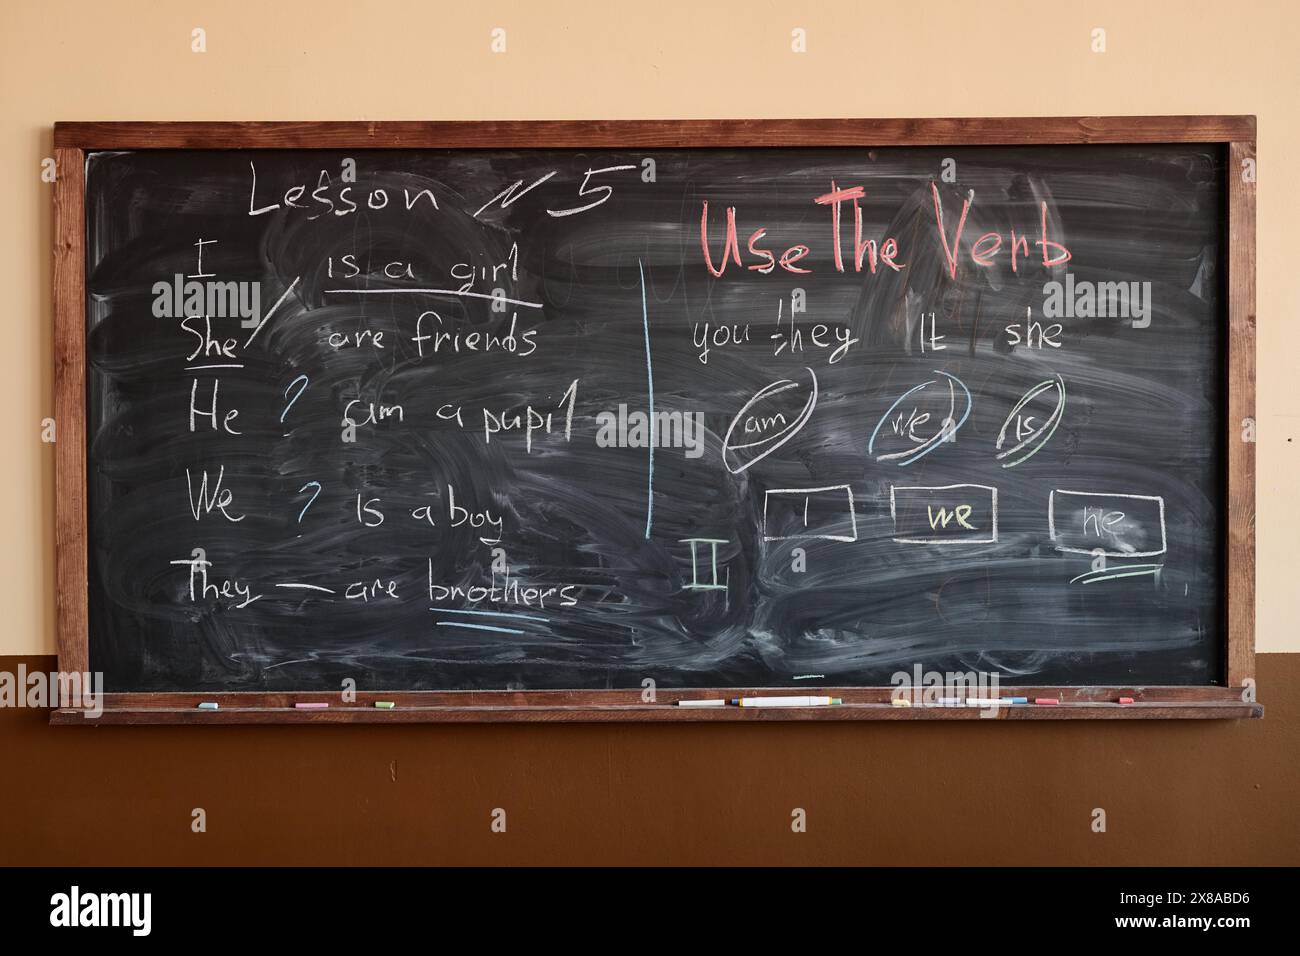 Lesson N 5
I is a girl
She are friends
He ? am a pupil
We ? is a boy
They — are brothers
Use The Verb
you they It she
am we is
I we he
II
alamy
Image ID: 2X8ABD6
www.alamy.com